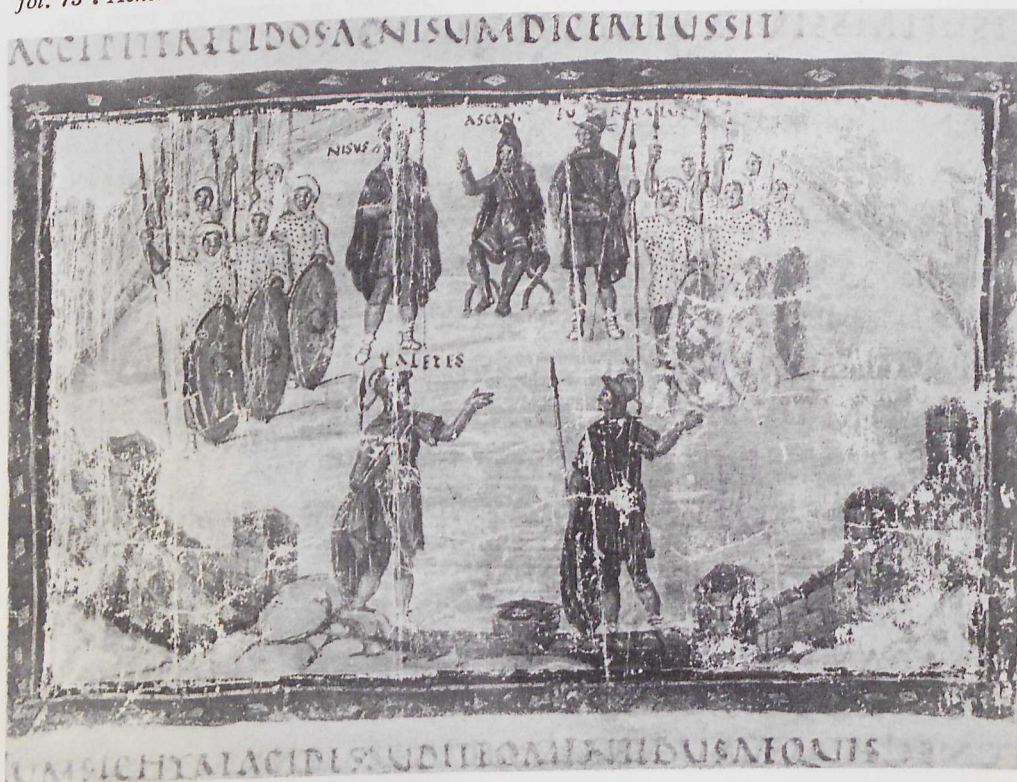 fol. 73
ACCEPITTREPIDOSACNISUMDICEREIUSSIT
NISUS
ASCAN·
EURYALUS
ALETES
UMSICHYRTACIDESAUDITEOMENTIBUSAEQUIS